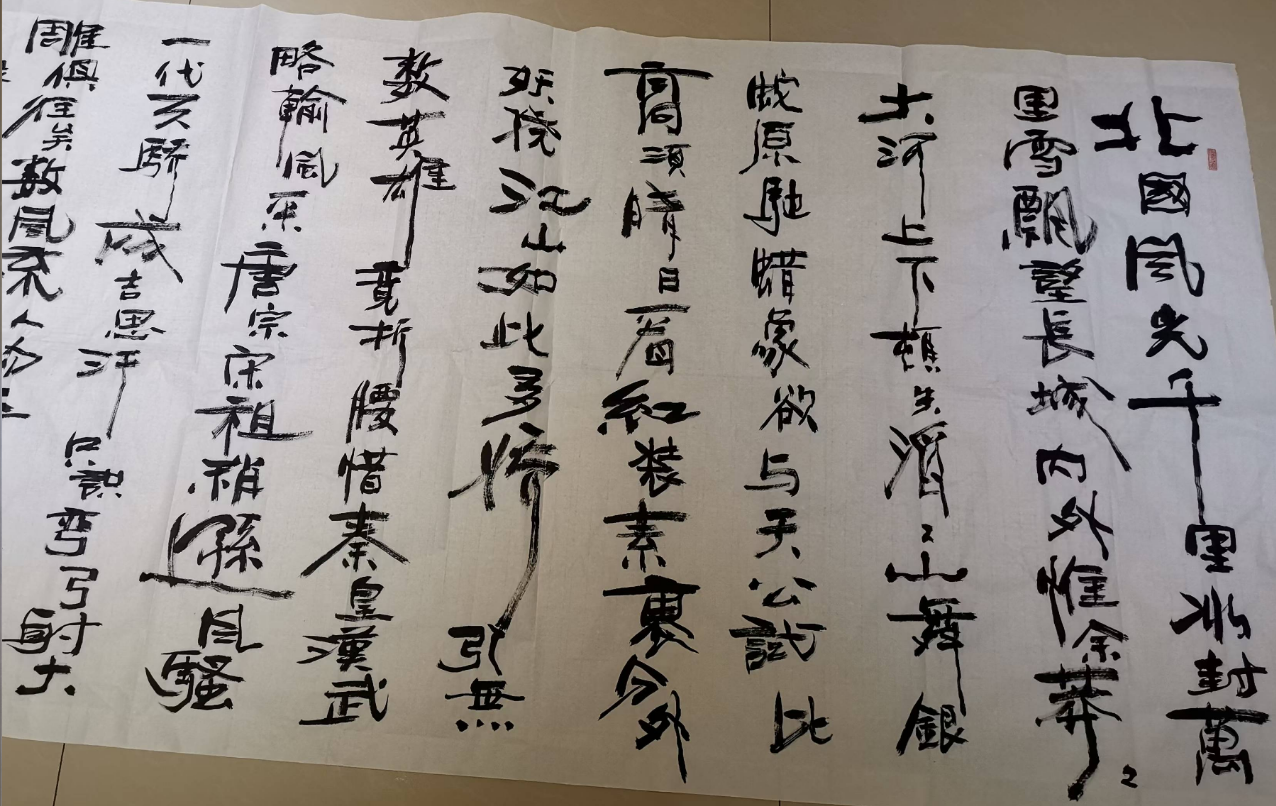 北國風光千里冰封萬
里雪飄望長城内外惟余莽〻
大河上下頓失滔〻山舞銀
蛇原馳蜡象欲与天公試比
高須晴日看紅装素裹分外
妖娆江山如此多娇引無
数英雄竟折腰惜秦皇漢武
略輸風采唐宗宋祖稍遜風騷
一代天驕成吉思汗只識弯弓射大
雕俱往矣数風流人物